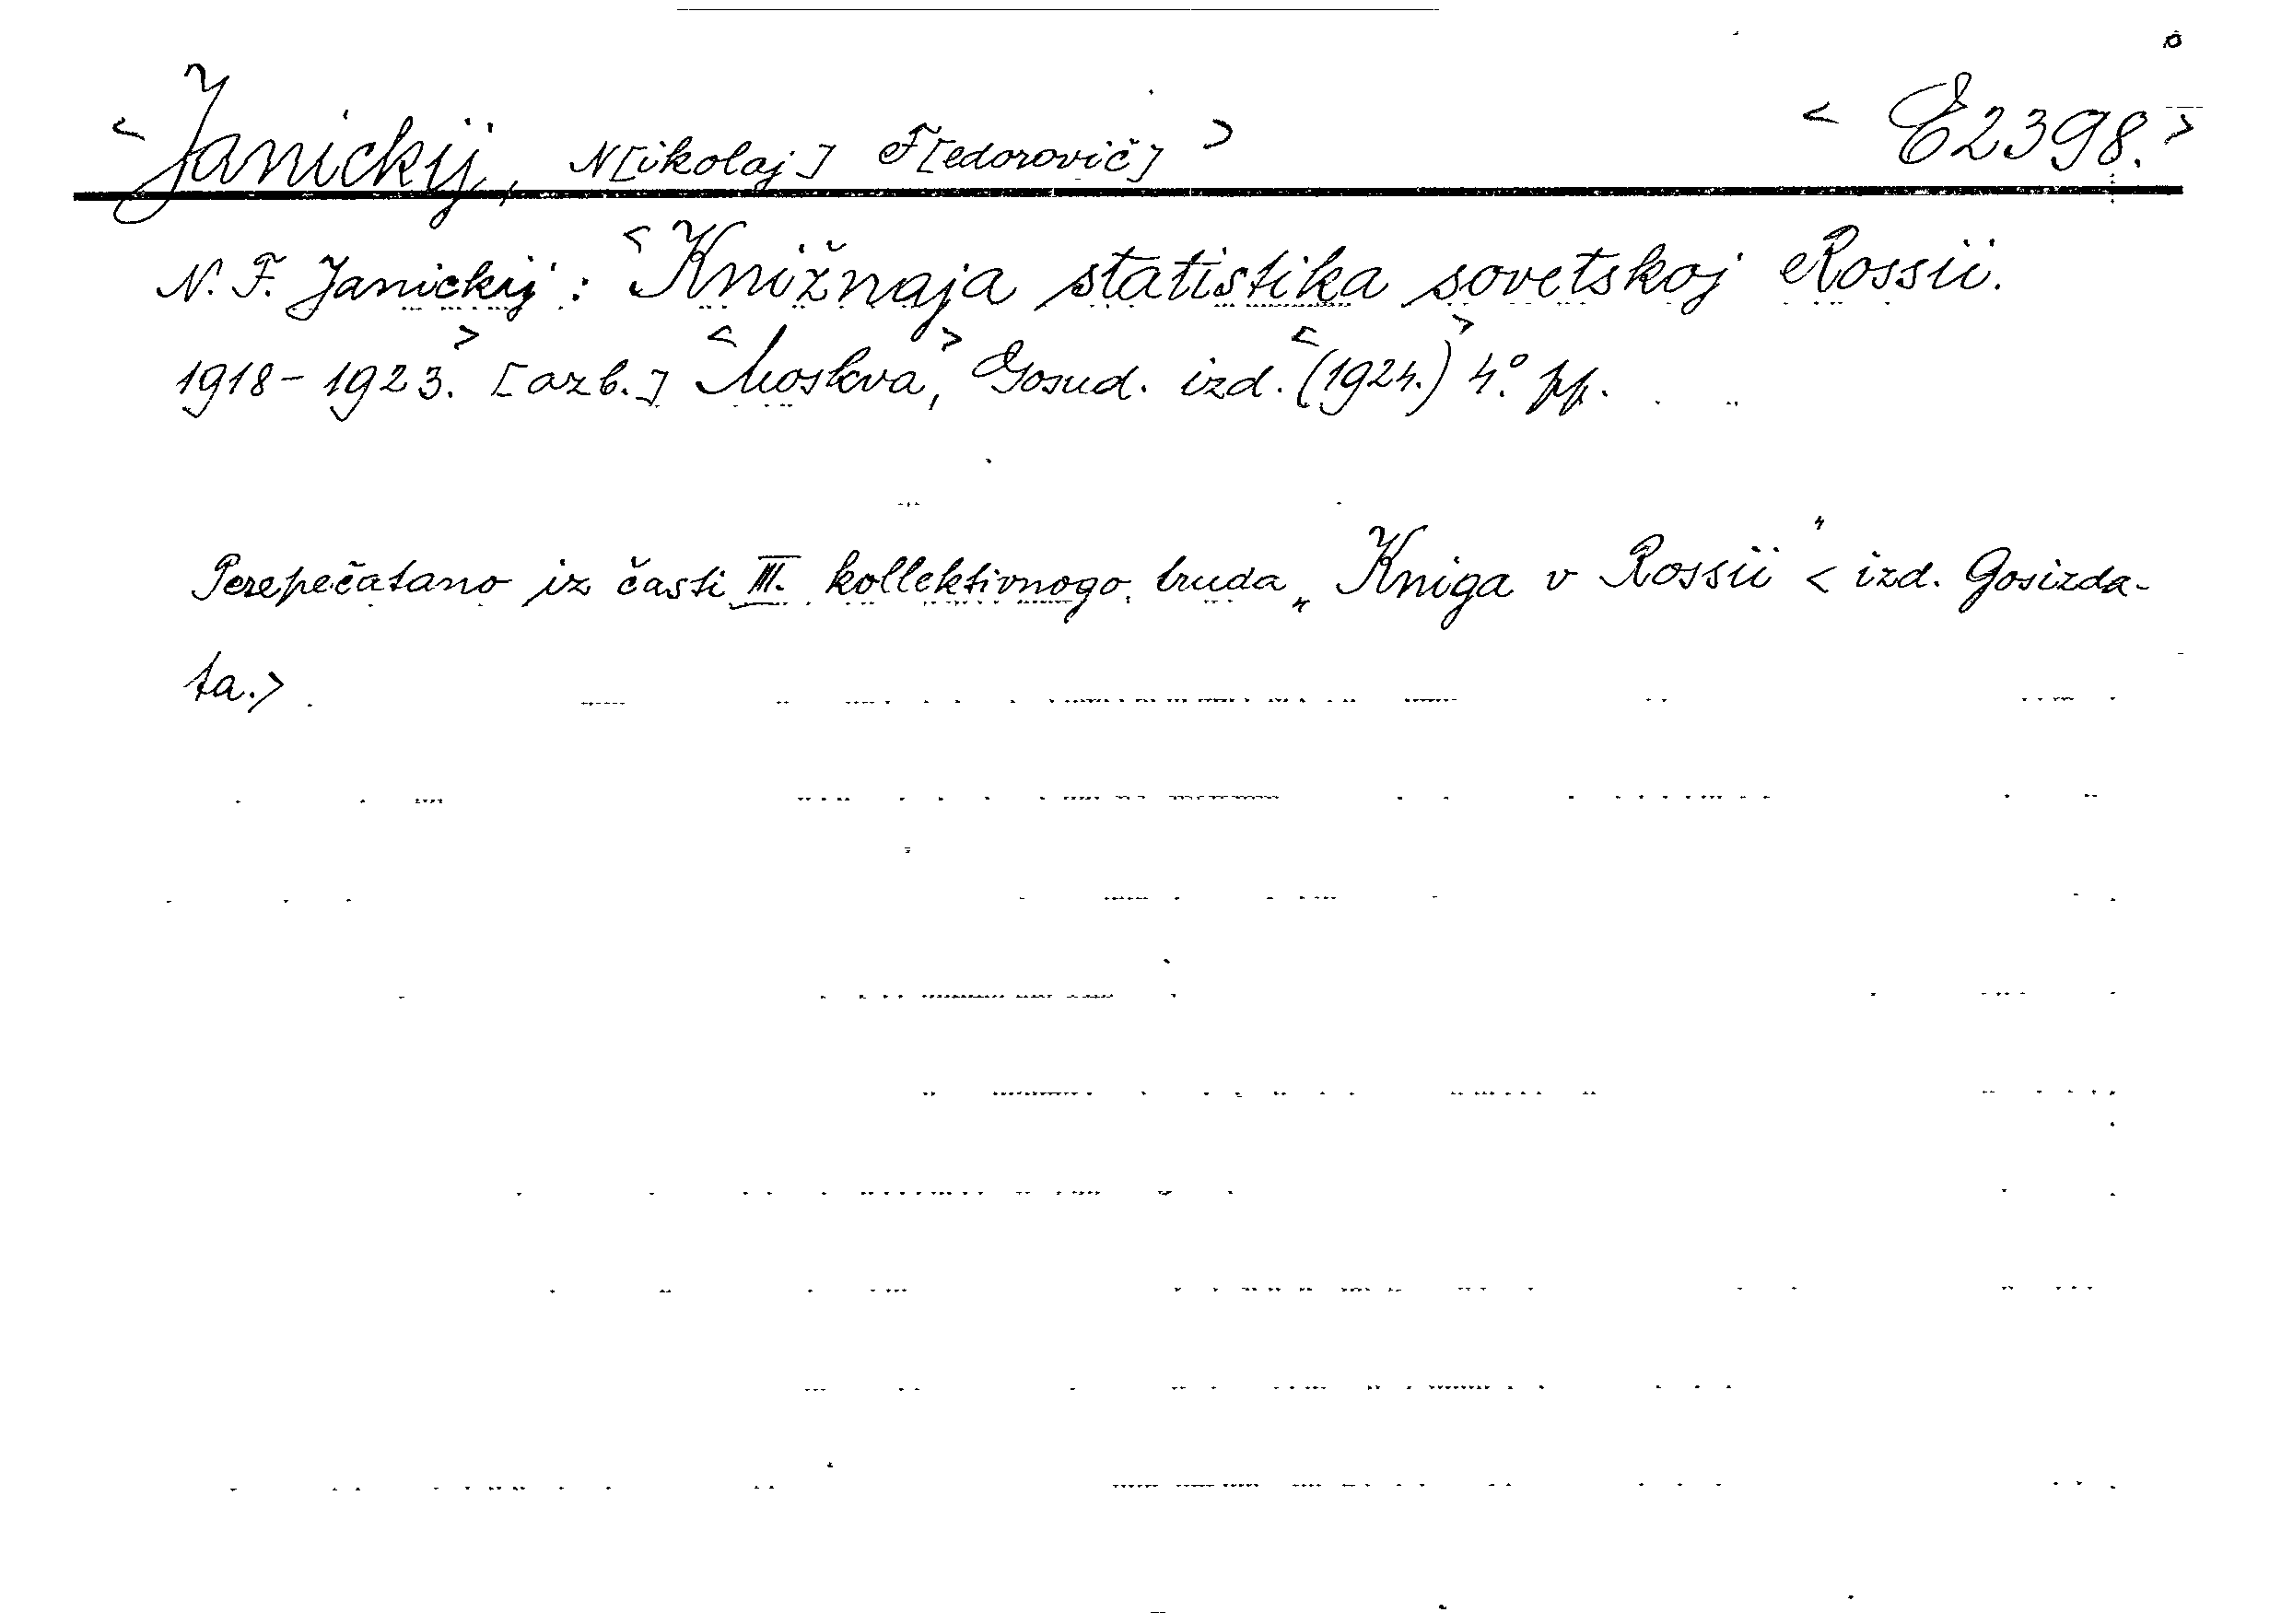 <Janickij, N[ikolaj] F[edorovič]> <E2398.>
N. F. Janickij: <Knižnaja statistika sovetskoj Rossii.
1918-1923.> [azb.] <Moskva,> Gosud. izd. <(1924.)> 4.° pp.
Perepečatano iz časti III. kollektivnogo truda „Kniga v Rossii" <izd. Gosizda-
ta.>